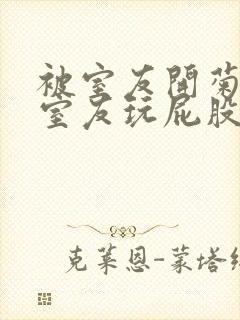 被室友闻菊
室友玩屁股
克莱恩-蒙塔